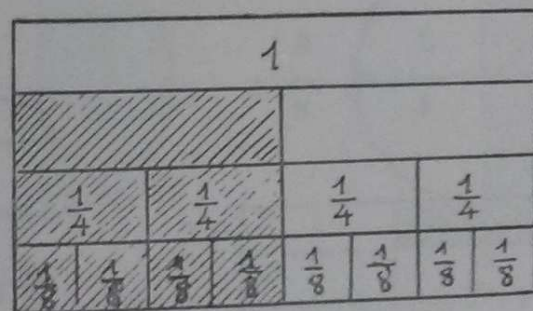 1
1/4 1/4 1/4 1/4
1/8 1/8 1/8 1/8 1/8 1/8 1/8 1/8